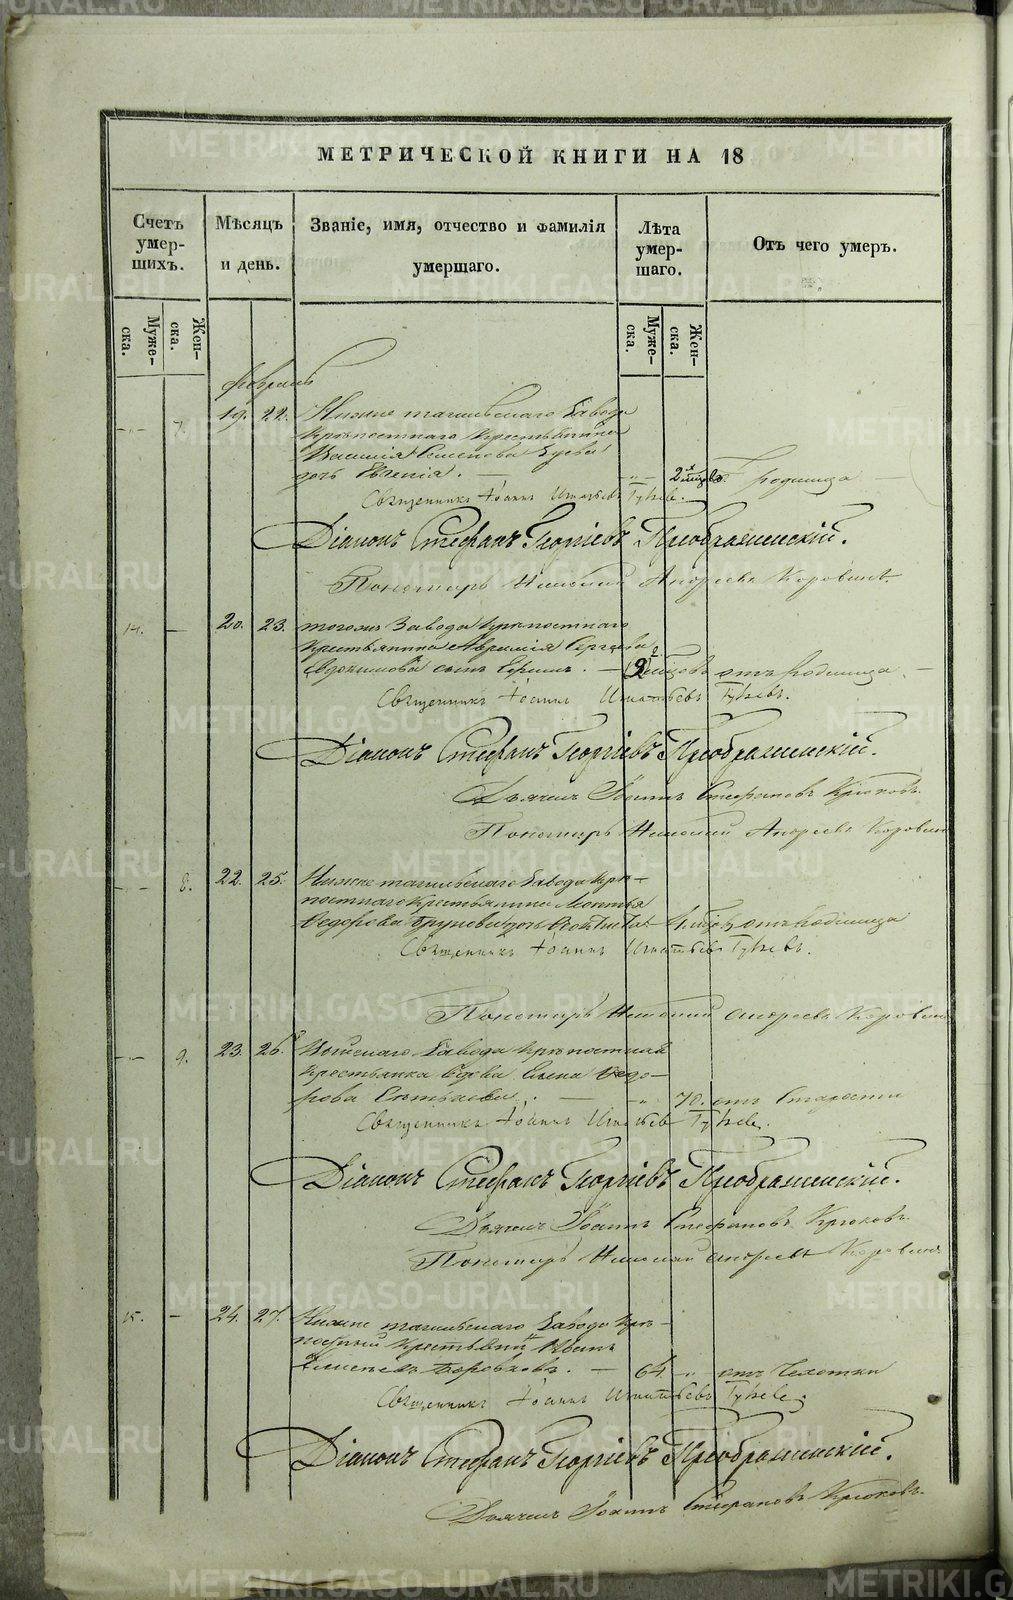 МЕТРИЧЕСКОЙ КНИГИ НА 18
Счетъ умер- шихъ.
Мѣсяцъ и день.
Званіе, имя, отчество и фамилія умершаго.
Лѣта умер- шаго.
Отъ чего умеръ.
Муже- ска.
Жен- ска.
Муже- ска.
Жен- ска.
Февраль
7. 19. 22. Нижне тагильскаго Завода
Крѣпостнаго Крестьянина
Василія Семенова
дочь Евгенія. 2 родимца
Священникъ Іоаннъ Игнатьевъ
Діаконъ Стефанъ Георгіевъ Преображенскій.
Пономарь Николай Андреевъ Коровинъ
14. 20. 23. тогожъ Завода Крѣпостнаго
Крестьянина Авраамія Сергѣева
Евдокимова сынъ отъ родимца
Священникъ Іоаннъ Игнатьевъ
Діаконъ Стефанъ Георгіевъ Преображенскій.
Дьячекъ Іоаннъ Стефановъ Крюковъ
Пономарь Николай Андреевъ Коровинъ
8. 22. 25. Нижне тагильскаго Завода Крѣ-
постнаго Крестьянина
Ѳедорова дочь отъ родимца
Священникъ Іоаннъ Игнатьевъ
Пономарь Николай Андреевъ Коровинъ
9. 23. 26. Завода Крѣпостная
Крестьянка вдова Елена Ѳедо-
рова 70. отъ Старости
Священникъ Іоаннъ Игнатьевъ
Діаконъ Стефанъ Георгіевъ Преображенскій.
Дьячекъ Іоаннъ Стефановъ Крюковъ
Пономарь Николай Андреевъ Коровинъ
15. 24. 27. Нижне тагильскаго Завода Крѣ-
постный Крестьянинъ
64. отъ Чахотки
Священникъ Іоаннъ Игнатьевъ
Діаконъ Стефанъ Георгіевъ Преображенскій.
Дьячекъ Іоаннъ Стефановъ Крюковъ
METRIKI.GASO-URAL.RU